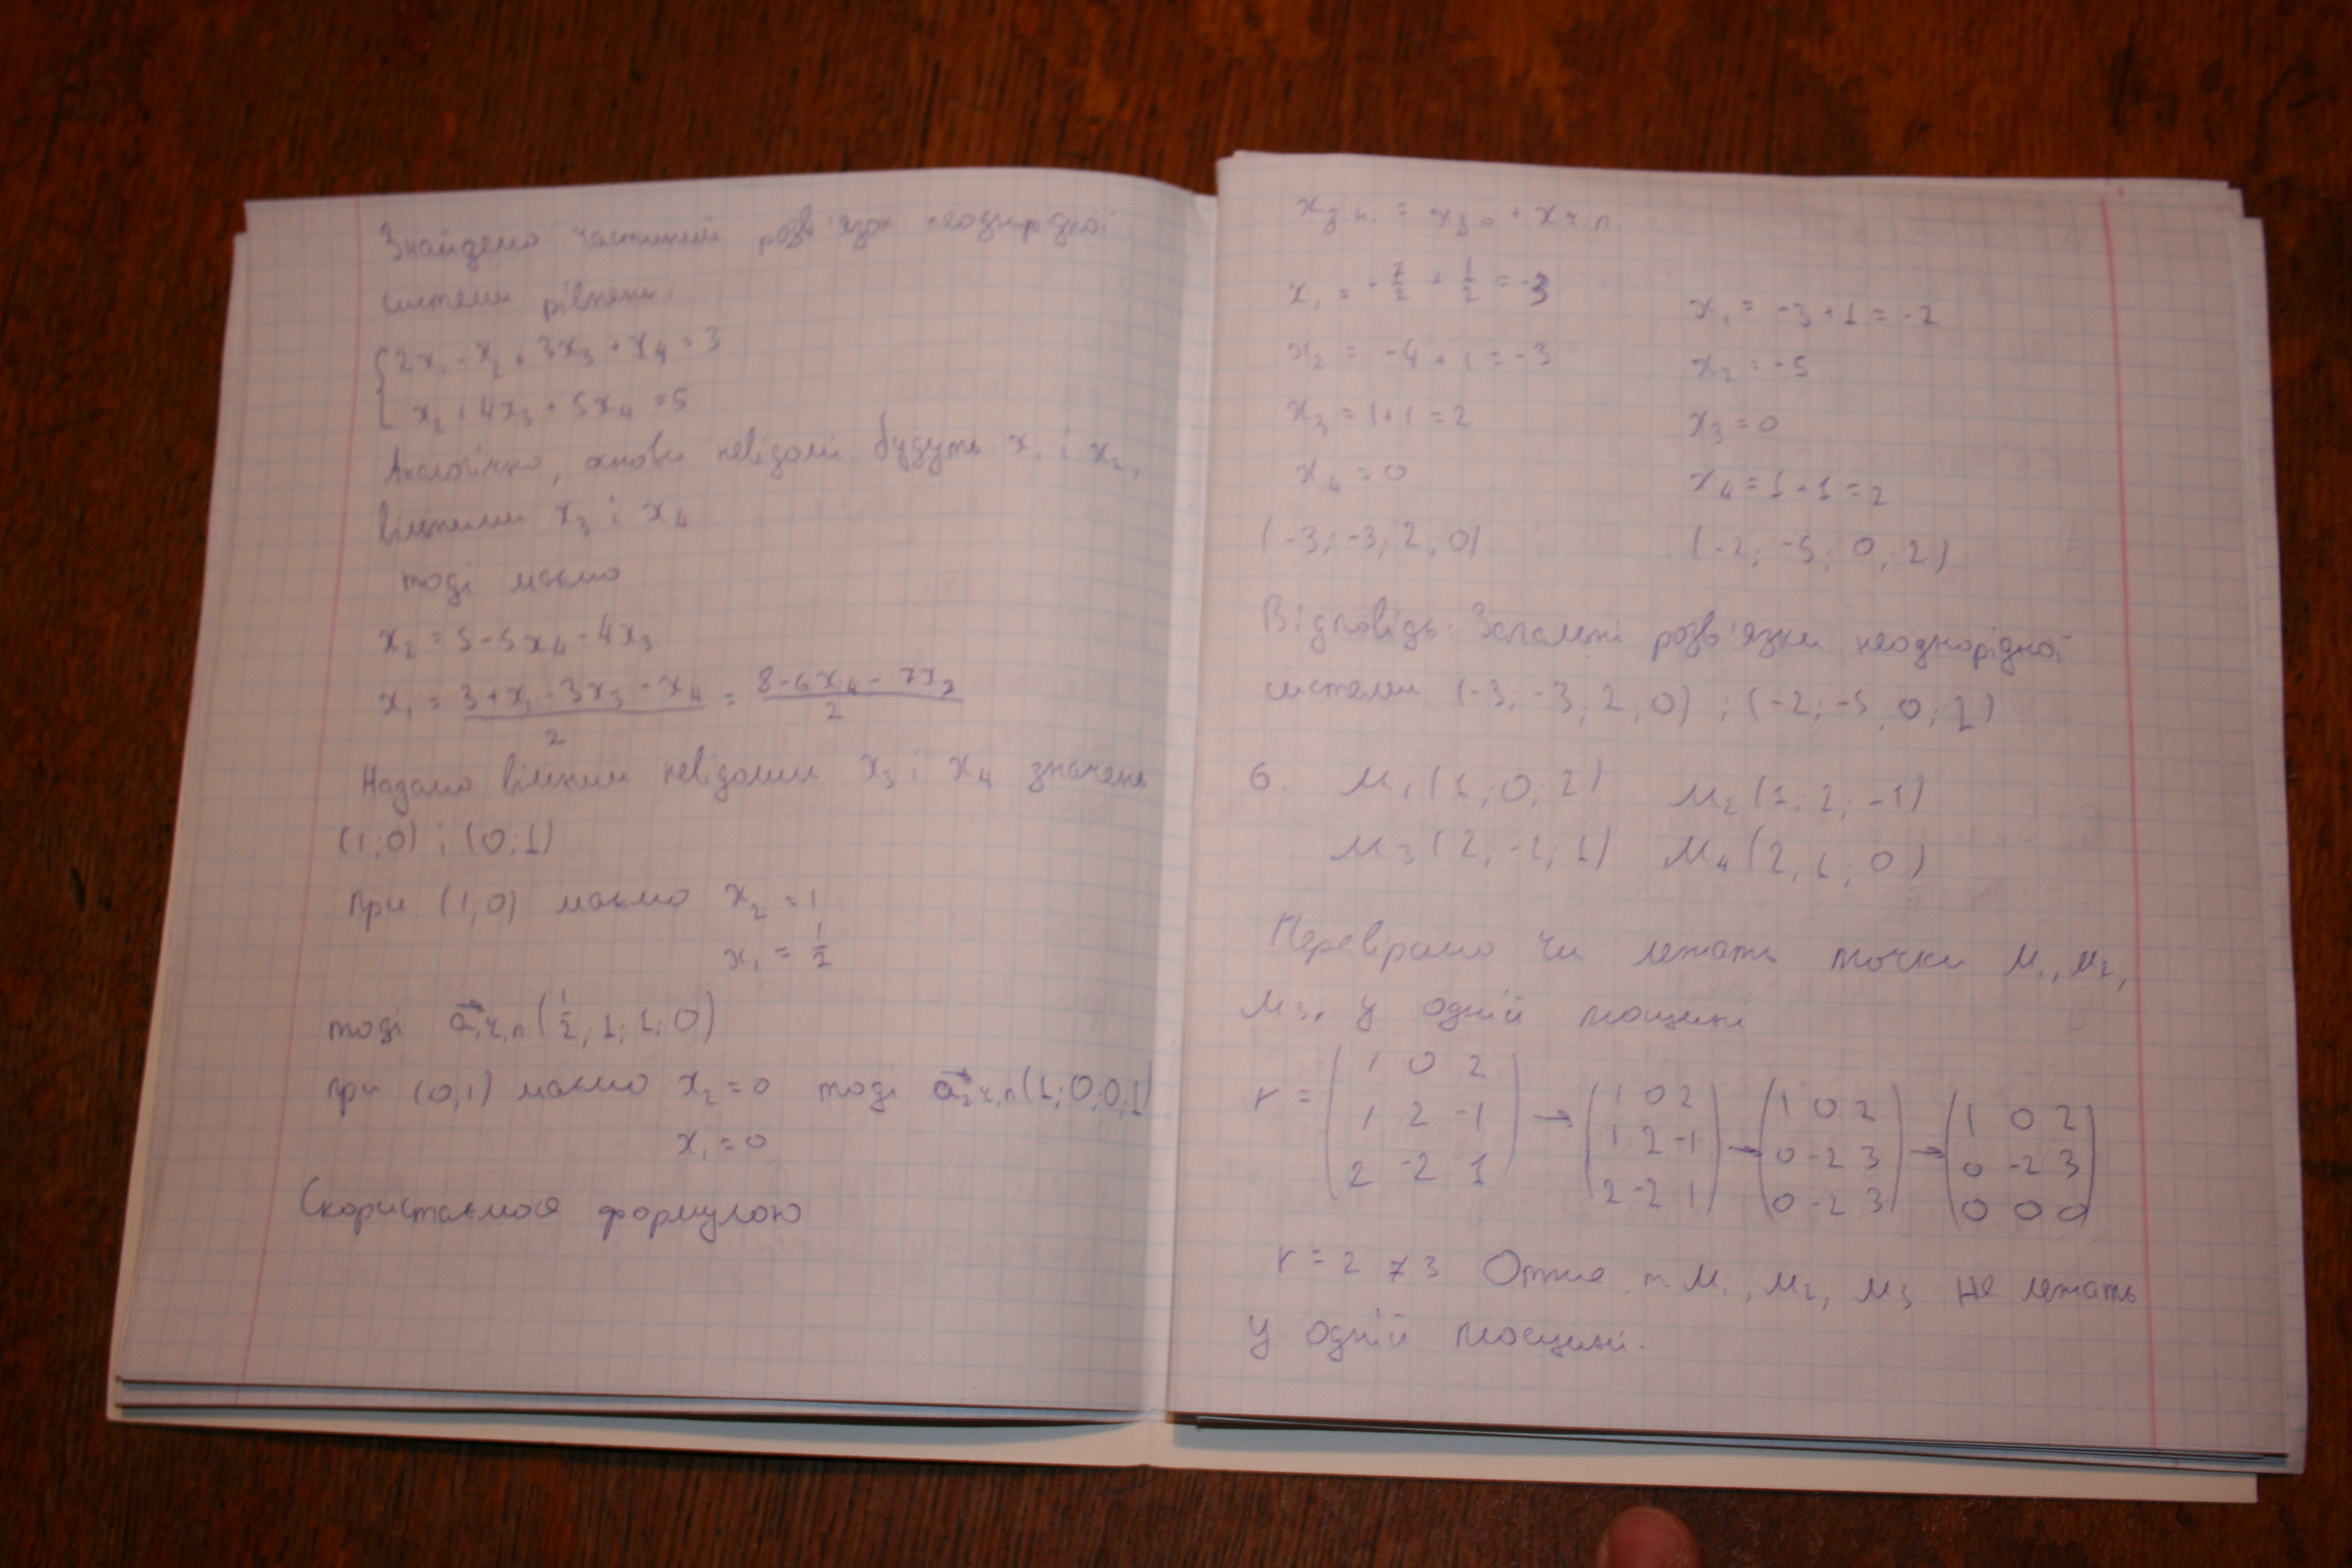 Знайдемо частинний розв'язок неоднорідної
системи рівнянь.
{ 2x₁ - x₂ + 3x₃ + x₄ = 3
x₂ + 4x₃ + 5x₄ = 5
Аналогічно, основні невідомі будуть x₁ і x₂,
вільними x₃ і x₄
тоді маємо
x₂ = 5 - 5x₄ - 4x₃
x₁ = (3 + x₂ - 3x₃ - x₄)/2 = (8 - 6x₄ - 7x₃)/2
Надамо вільним невідомим x₃ і x₄ значень
(1;0) ; (0;1)
При (1;0) маємо x₂ = 1
x₁ = 1/2
тоді a⃗₁ч.п (1/2; 1; 1; 0)
при (0,1) маємо x₂ = 0 тоді a⃗₂ч.п (1; 0; 0; 1)
x₁ = 0
Скористаємося формулою
xз.н. = xз.о + xч.п.
x₁ = -7/2 + 1/2 = -3
x₂ = -4 + 1 = -3
x₃ = 1 + 1 = 2
x₄ = 0
(-3; -3; 2, 0)
x₁ = -3 + 1 = -2
x₂ = -5
x₃ = 0
x₄ = 1 + 1 = 2
(-2; -5; 0; 2)
Відповідь: Загальні розв'язки неоднорідної
системи (-3, -3; 2, 0) ; (-2; -5, 0; 2)
6. M₁(1; 0; 2) M₂(1; 2; -1)
M₃(2, -2; 1) M₄(2, 1; 0)
Перевіримо чи лежать точки M₁, M₂,
M₃, у одній площині
r = (1 0 2 / 1 2 -1 / 2 -2 1) → (1 0 2 / 1 2 -1 / 2 -2 1) → (1 0 2 / 0 -2 3 / 0 -2 3) → (1 0 2 / 0 -2 3 / 0 0 0)
r = 2 ≠ 3 Отже т. M₁, M₂, M₃ не лежать
у одній площині.